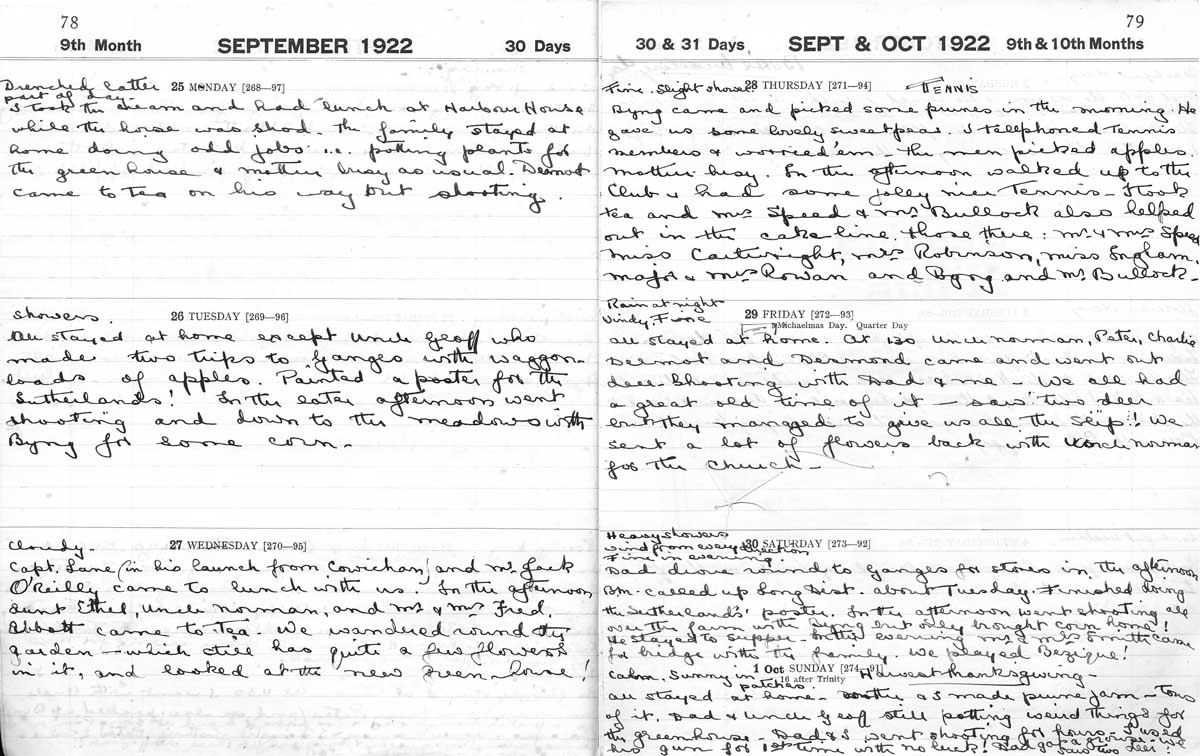 78
9th Month SEPTEMBER 1922 30 Days
Drenched latter
part of day
25 MONDAY [268—97]
I took the team and had lunch at Harbour House
while the horse was shod. The family stayed at
home doing odd jobs i.e. potting plants for
the green house & mother busy as usual. Desmond
came to tea on his way out shooting.
showers.
26 TUESDAY [269—96]
All stayed at home except Uncle Geoff who
made two trips to Ganges with waggon-
loads of apples. Painted a poster for the
Sutherlands! In the later afternoon went
shooting and down to the meadows with
Byng for some corn -
Cloudy -
27 WEDNESDAY [270—95]
Capt. Lane (in his launch from Cowichan) and Mr. Jack
O'Reilly came to lunch with us. In the afternoon
Aunt Ethel, Uncle Norman, and Mr & Mrs Fred.
Abbott came to Tea - We wandered round the
garden - which still has quite a few flowers
in it, and looked at the new green-house!
79
30 & 31 Days SEPT & OCT 1922 9th & 10th Months
Fine. Slight showers
28 THURSDAY [271—94]
TENNIS
Byng came and picked some prunes in the morning. He
gave us some lovely sweetpeas. I telephoned Tennis
members & worried 'em - The men picked apples.
Mother busy. In the afternoon walked up to the
Club & had some jolly nice Tennis - I took
tea and Mrs Speed & Mr Bullock also helped
out in the cake line. Those there: Mr & Mrs Speed
Miss Cartwright, Mrs Robinson, Miss Englam,
Major & Mrs Rowan and Byng and Mr Bullock -
Rain at night
Windy, Fine
29 FRIDAY [272—93]
Michaelmas Day. Quarter Day
All stayed at home. At 1.30 Uncle Norman, Peter, Charlie
Dermot and Desmond came and went out
deer shooting with Dad & me - We all had
a great old time of it - saw two deer
but they managed to give us all the slip!! We
sent a lot of flowers back with Uncle Norman
for the Church -
Heavy showers
wind from every direction
Fine in evening
30 SATURDAY [273—92]
Dad drove round to Ganges for stores in the afternoon
B.M. called up Long Dist. about Tuesday. Finished doing
the Sutherlands' poster. In the afternoon went shooting all
over the farm with Byng but only brought corn home!
He stayed to supper - In the evening Mr & Mrs Smith came
for bridge with the family. We played Bezique!
1 Oct SUNDAY [274—91]
16 after Trinity
Calm. Sunny in
patches.
Harvest Thanksgiving -
All stayed at home. Mother & I made prune jam - Tons
of it. Dad & Uncle Geoff still potting weird things for
the greenhouse - Dad & I went shooting for hours. I used
his gun for 1st time with no luck! Dad a grouse - we
saw two deer!